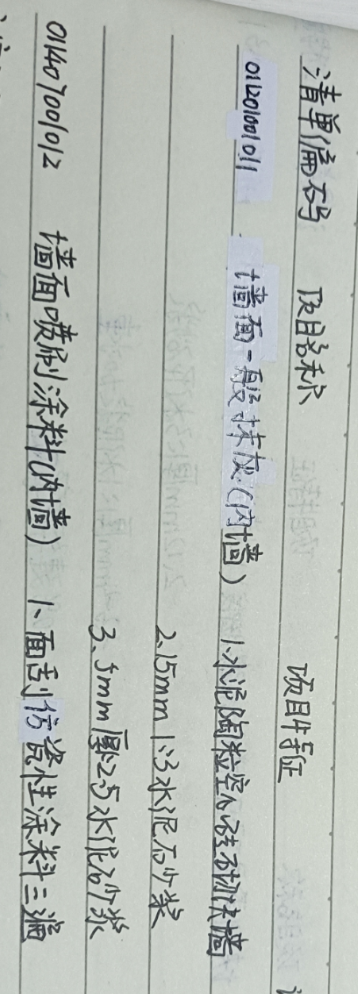 清单编码 项目名称 项目特征
011201001011 墙面一般抹灰(内墙) 1.水泥陶粒空心砖砌块墙
2.15mm 1:3水泥石少浆
3.5mm厚1:2.5水泥砂浆
011407001012 墙面喷刷涂料(内墙) 1、面刮仿瓷性涂料三遍